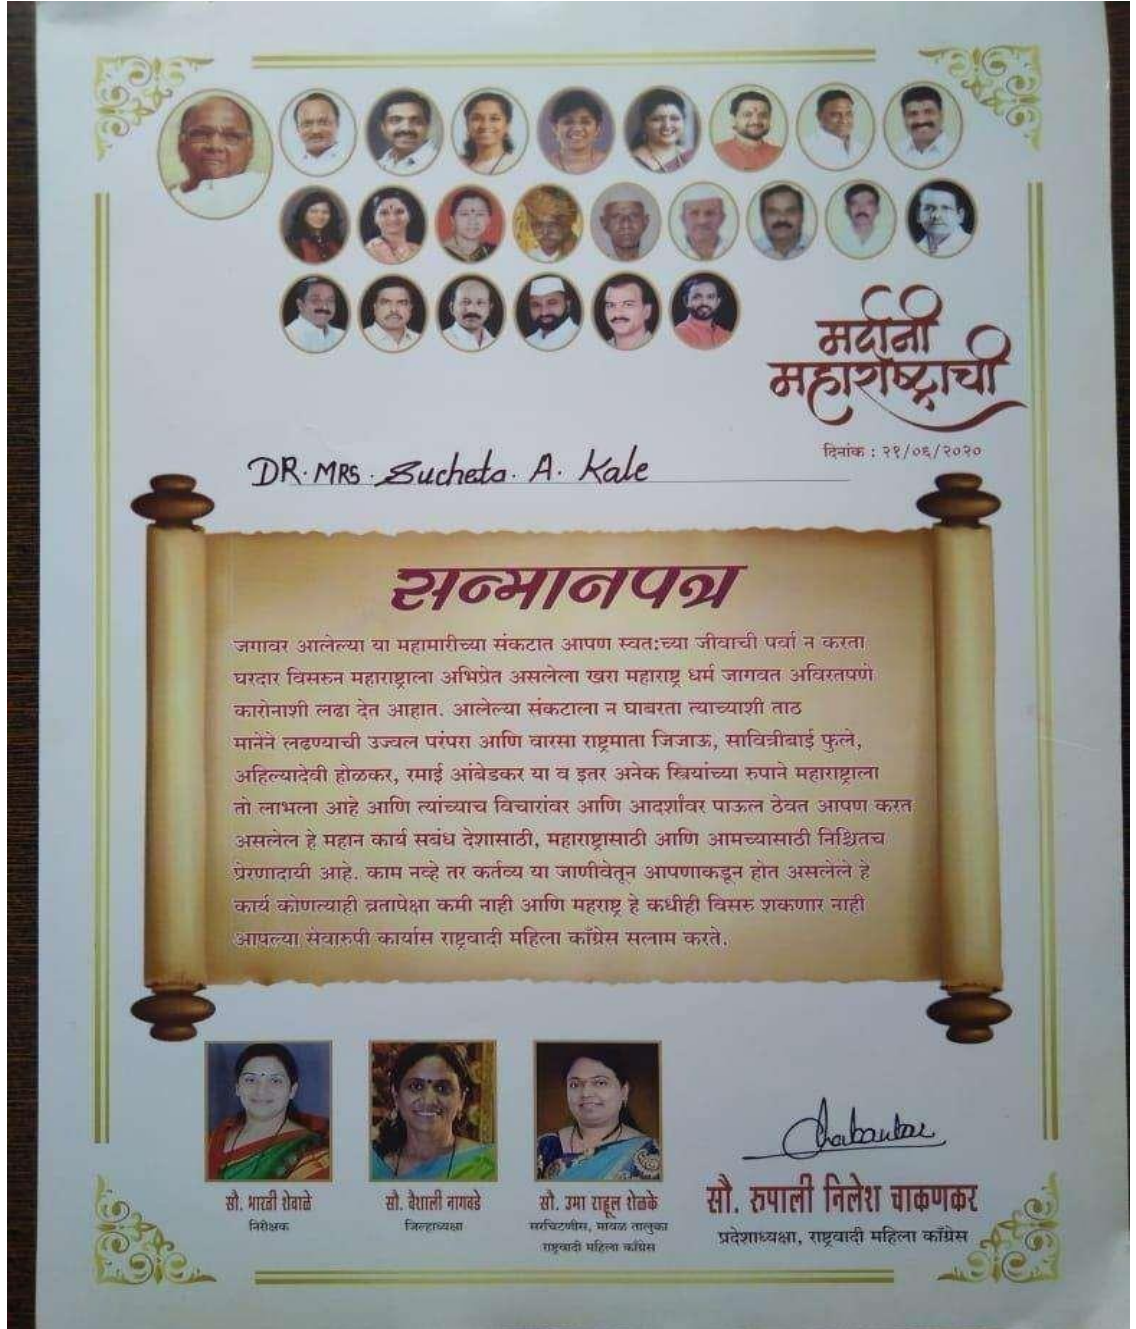 मर्दानी
महाराष्ट्राची
दिनांक : २१/०६/२०२०
DR. MRS. Sucheta. A. Kale
सन्मानपत्र
जगावर आलेल्या या महामारीच्या संकटात आपण स्वत:च्या जीवाची पर्वा न करता
घरदार विसरुन महाराष्ट्राला अभिप्रेत असलेला खरा महाराष्ट्र धर्म जागवत अविरतपणे
कारोनाशी लढा देत आहात. आलेल्या संकटाला न घाबरता त्याच्याशी ताठ
मानेने लढण्याची उज्वल परंपरा आणि वारसा राष्ट्रमाता जिजाऊ, सावित्रीबाई फुले,
अहिल्यादेवी होळकर, रमाई आंबेडकर या व इतर अनेक स्त्रियांच्या रुपाने महाराष्ट्राला
तो लाभला आहे आणि त्यांच्याच विचारांवर आणि आदर्शांवर पाऊल ठेवत आपण करत
असलेल हे महान कार्य सबंध देशासाठी, महाराष्ट्रासाठी आणि आमच्यासाठी निश्चितच
प्रेरणादायी आहे. काम नव्हे तर कर्तव्य या जाणीवेतून आपणाकडून होत असलेले हे
कार्य कोणत्याही व्रतापेक्षा कमी नाही आणि महराष्ट्र हे कधीही विसरु शकणार नाही
आपल्या सेवारुपी कार्यास राष्ट्रवादी महिला काँग्रेस सलाम करते.
Chakankar
सौ. भारती शेवाळे
निरीक्षक
सौ. वैशाली नागवडे
जिल्हाध्यक्षा
सौ. उमा राहूल शेळके
सरचिटणीस, मावळ तालुका
राष्ट्रवादी महिला काँग्रेस
सौ. रुपाली निलेश चाकणकर
प्रदेशाध्यक्षा, राष्ट्रवादी महिला काँग्रेस